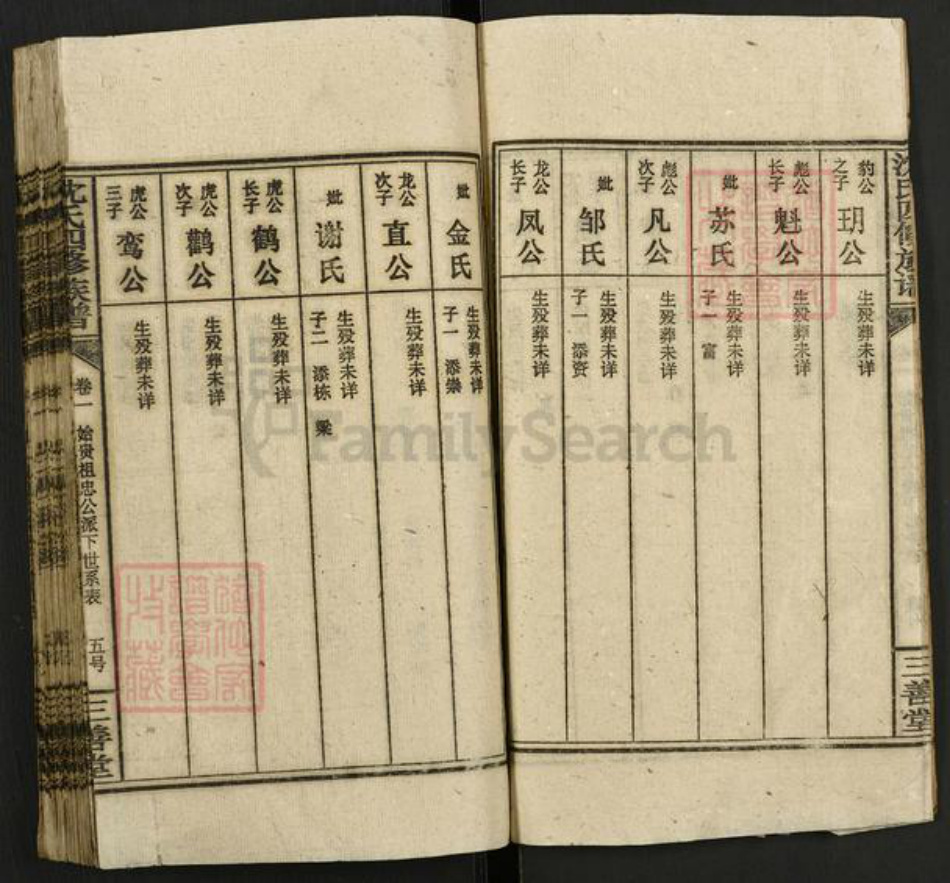 沈氏四修族谱
三善堂
豹公之子 玥公
生殁葬未详
彪公长子 魁公
生殁葬未详
妣 苏氏
生殁葬未详
子一 富
彪公次子 凡公
生殁葬未详
妣 邹氏
生殁葬未详
子一 添资
龙公长子 凤公
生殁葬未详
妣 金氏
生殁葬未详
子一 添崇
龙公次子 直公
生殁葬未详
妣 谢氏
生殁葬未详
子二 添栋 梁
虎公长子 鹤公
生殁葬未详
虎公次子 鹳公
生殁葬未详
虎公三子 鸾公
生殁葬未详
沈氏四修族谱
卷一 始贵祖忠公派下世系表 五号
三善堂
FamilySearch